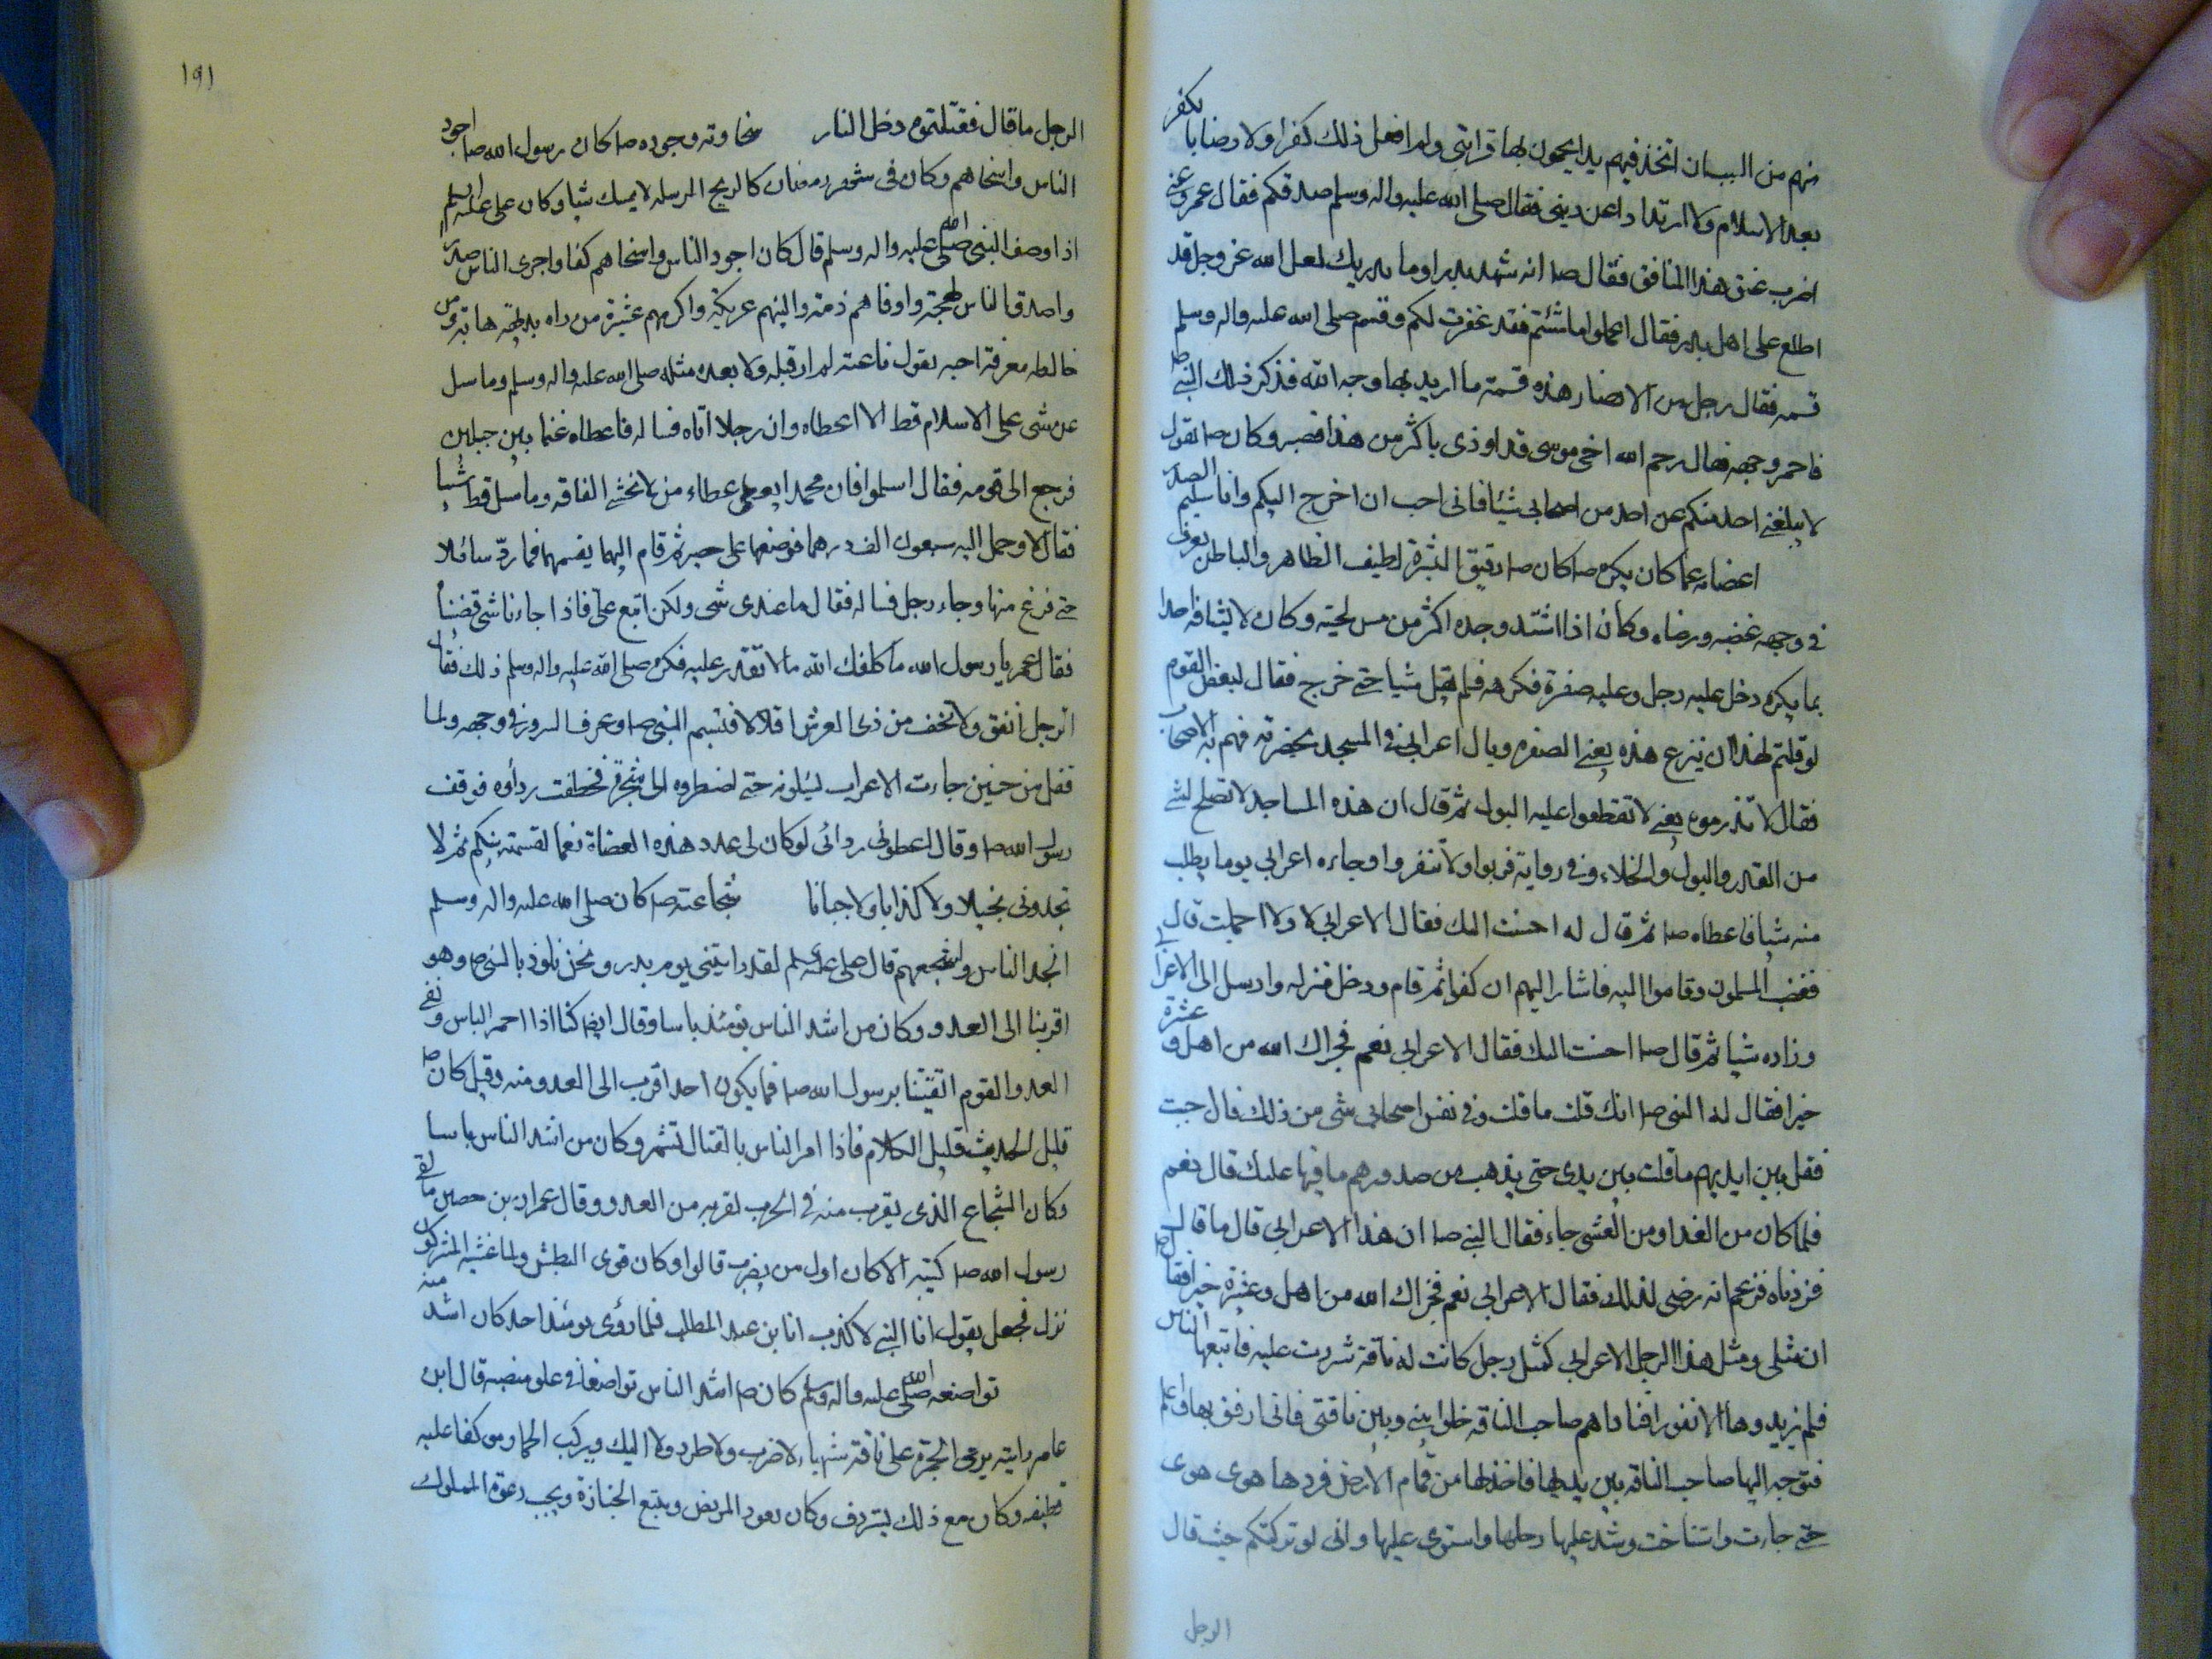 منهم من النسب ان اتخذ فيهم يدا يحمون بها قرابتي ولم افعل ذلك كفرا ولا رضا بالكفر
بعد الاسلام ولا ارتدادا عن ديني فقال صلى الله عليه واله وسلم صدقكم فقال عمر دعني
اضرب عنق هذا المنافق فقال صلم انه شهد بدرا وما يدريك لعل الله عز وجل قد
اطلع على اهل بدر فقال اعملوا ما شئتم فقد غفرت لكم وقسم صلى الله عليه واله وسلم
قسمه فقال رجل من الانصار هذه قسمة ما اريد بها وجه الله فذكر ذلك للنبي صلم
فاحمر وجهه فقال رحم الله اخي موسى قد اوذى باكثر من هذا فصبر وكان صلم يقول
لا يبلغني احد منكم عن احد من اصحابي شيئا فاني احب ان اخرج اليكم وانا سليم الصدر
اعضاؤه عما كان يكره صلم كان صلم رقيق البشرة لطيف الظاهر والباطن يعرف
في وجهه غضبه ورضاه وكان اذا اشتد وجده اكثر من مس لحيته وكان لا يشافه احدا
بما يكره دخل عليه رجل وعليه صفرة فكرهه فلم يقل شيا حتى خرج فقال لبعض القوم
لو قلتم لهذا ان ينزع هذه يعني الصفره وبال اعرابي في المسجد بحضرته فهم به الاصحاب
فقال لا تذرموه يعني لا تقطعوا عليه البول ثم قال ان هذه المساجد لا تصلح لشي
من القذر والبول والخلاء وفي رواية قربوا ولا تنفروا وجاءه اعرابي يوما يطلب
منه شيا فاعطاه صلم ثم قال له احسنت اليك فقال الاعرابي لا ولا اجملت قال
فغضب المسلمون وقاموا اليه فاشار اليهم ان كفوا ثم قام ودخل منزله وارسل الى الاعرابي
وزاده شيا ثم قال صلم احسنت اليك فقال الاعرابي نعم فجزاك الله من اهل وعشرة
خيرا فقال له النبي صلم انك قلت ما قلت وفي نفس اصحابي شي من ذلك فان احببت
فقل بين ايديهم ما قلت بين يدى حتى يذهب من صدورهم ما فيها عليك قال نعم
فلما كان من الغد او من العشى جاء فقال النبي صلم ان هذا الاعرابي قال ما قال
فزدناه فزعم انه رضى لذلك فقال الاعرابي نعم فجزاك الله من اهل وعشرة خيرا فقال صلم
ان مثلى ومثل هذا الرجل الاعرابي كمثل رجل كانت له ناقة شردت عليه فاتبعها الناس
فلم يزيدوها الا نفورا فناداهم صاحب الناقه خلوا بيني وبين ناقتي فاني ارفق بها واعلم
فتوجه اليها صاحب الناقه بين يديها فاخذ لها من قمام الارض فردها هوى هوى
حتى جاءت واستناخت وشد عليها رحلها واستوى عليها واني لو تركتكم حيث قال
الرجل
١٩١
الرجل ما قال فقتلتموه دخل النار سخاوته وجوده صلم كان رسول الله صلم اجود
الناس واسخاهم وكان في شهر رمضان كالريح المرسله لا يمسك شيا وكان على عليه السلم
اذا وصف النبي صلى الله عليه واله وسلم قال كان اجود الناس واسخاهم كفا واجرى الناس صدرا
واصدق الناس لهجة واوفاهم ذمة والينهم عريكة واكرمهم عشيرة من راه بديهة هابه ومن
خالطه معرفة احبه يقول ناعته لم ار قبله ولا بعده مثله صلى الله عليه واله وسلم وما سئل
عن شى على الاسلام قط الا اعطاه وان رجلا اتاه فساله فاعطاه غنما بين جبلين
فرجع الى قومه فقال اسلموا فان محمدا يعطى عطاء من لا يخشى الفاقه وما سئل قط شيا
فقال لا وحمل اليه سبعون الف درهما فوضعها على حصير ثم قام اليها يقسمها فما رد سائلا
حتى فرغ منها وجاء رجل فساله فقال ما عندى شى ولكن ابتع على فاذا جاءنا شى قضينا
فقال عمر يا رسول الله ما كلفك الله ما لا تقدر عليه فكره صلى الله عليه واله وسلم ذلك فقال
الرجل انفق ولا تخف من ذى العرش اقلالا فتبسم النبي صلم وعرف السرور في وجهه ولما
قفل من حنين جاءت الاعراب يسئلونه حتى اضطروه الى شجرة فخطفت رداؤه فوقف
رسول الله صلم وقال اعطوني ردائى لو كان لى عدد هذه العضاة نعما لقسمته بينكم ثم لا
تجدوني بخيلا ولا كذابا ولا جبانا شجاعته صلم كان صلى الله عليه واله وسلم
انجد الناس واشجعهم قال على عليه السلم لقد رايتني يوم بدر ونحن نلوذ بالنبي صلم وهو
اقربنا الى العدو وكان من اشد الناس يومئذ باسا وقال ايضا كنا اذا احمر الباس ولقي
العدو القوم اتقينا برسول الله صلم فما يكون احد اقرب الى العدو منه وقيل كان صلم
قليل الحديث قليل الكلام فاذا امر الناس بالقتال تشمر وكان من اشد الناس باسا
وكان الشجاع الذى يقرب منه في الحرب لقربه من العدو وقال عمران بن حصين ما لقي
رسول الله صلم كتيبه الا كان اول من يضرب قالوا وكان قوى البطش ولما غشيه المشركون
نزل فجعل يقول انا النبي لا كذب انا بن عبد المطلب فلما رؤى يومئذ احد كان اشد منه
تواضعه صلى الله عليه واله وسلم كان صلم اشد الناس تواضعا في علو منصبه قال ابن
عامر رايته يرمى الجمرة على ناقة شهباء لا ضرب ولا طرد ولا اليك اليك ويركب الحمار موكفا عليه
قطيفه وكان مع ذلك يستردف وكان يعود المريض ويتبع الجنازة ويجيب دعوة المملوك